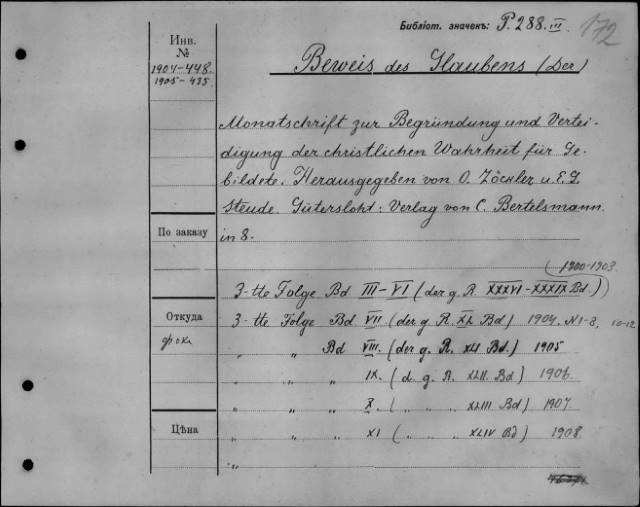 Библіот. значекъ: P. 288. III. 172
Инв.
№
1904-448.
1905-435.
Beweis des Glaubens (Der)
Monatschrift zur Begründung und Vertei-
digung der christlichen Wahrheit für Ge-
bildete. Herausgegeben von O. Zöckler u. E. G.
Steude. Gütersloht: Verlag von C. Bertelsmann.
По заказу
in 8.
1900-1903.
3-tte Folge Bd III-VI (der g. R. XXXVI-XXXIX Bd.)
Откуда
3-tte Folge Bd VII (der g. R. XL Bd) 1904. N1-8, 10-12
" " Bd VIII. (der g. R. XLI Bd.) 1905
" " IX. (d. g. R. XLII. Bd) 1906.
" " X. ( " " XLIII Bd) 1907.
Цѣна
" " XI ( " " XLIV Bd) 1908.
"